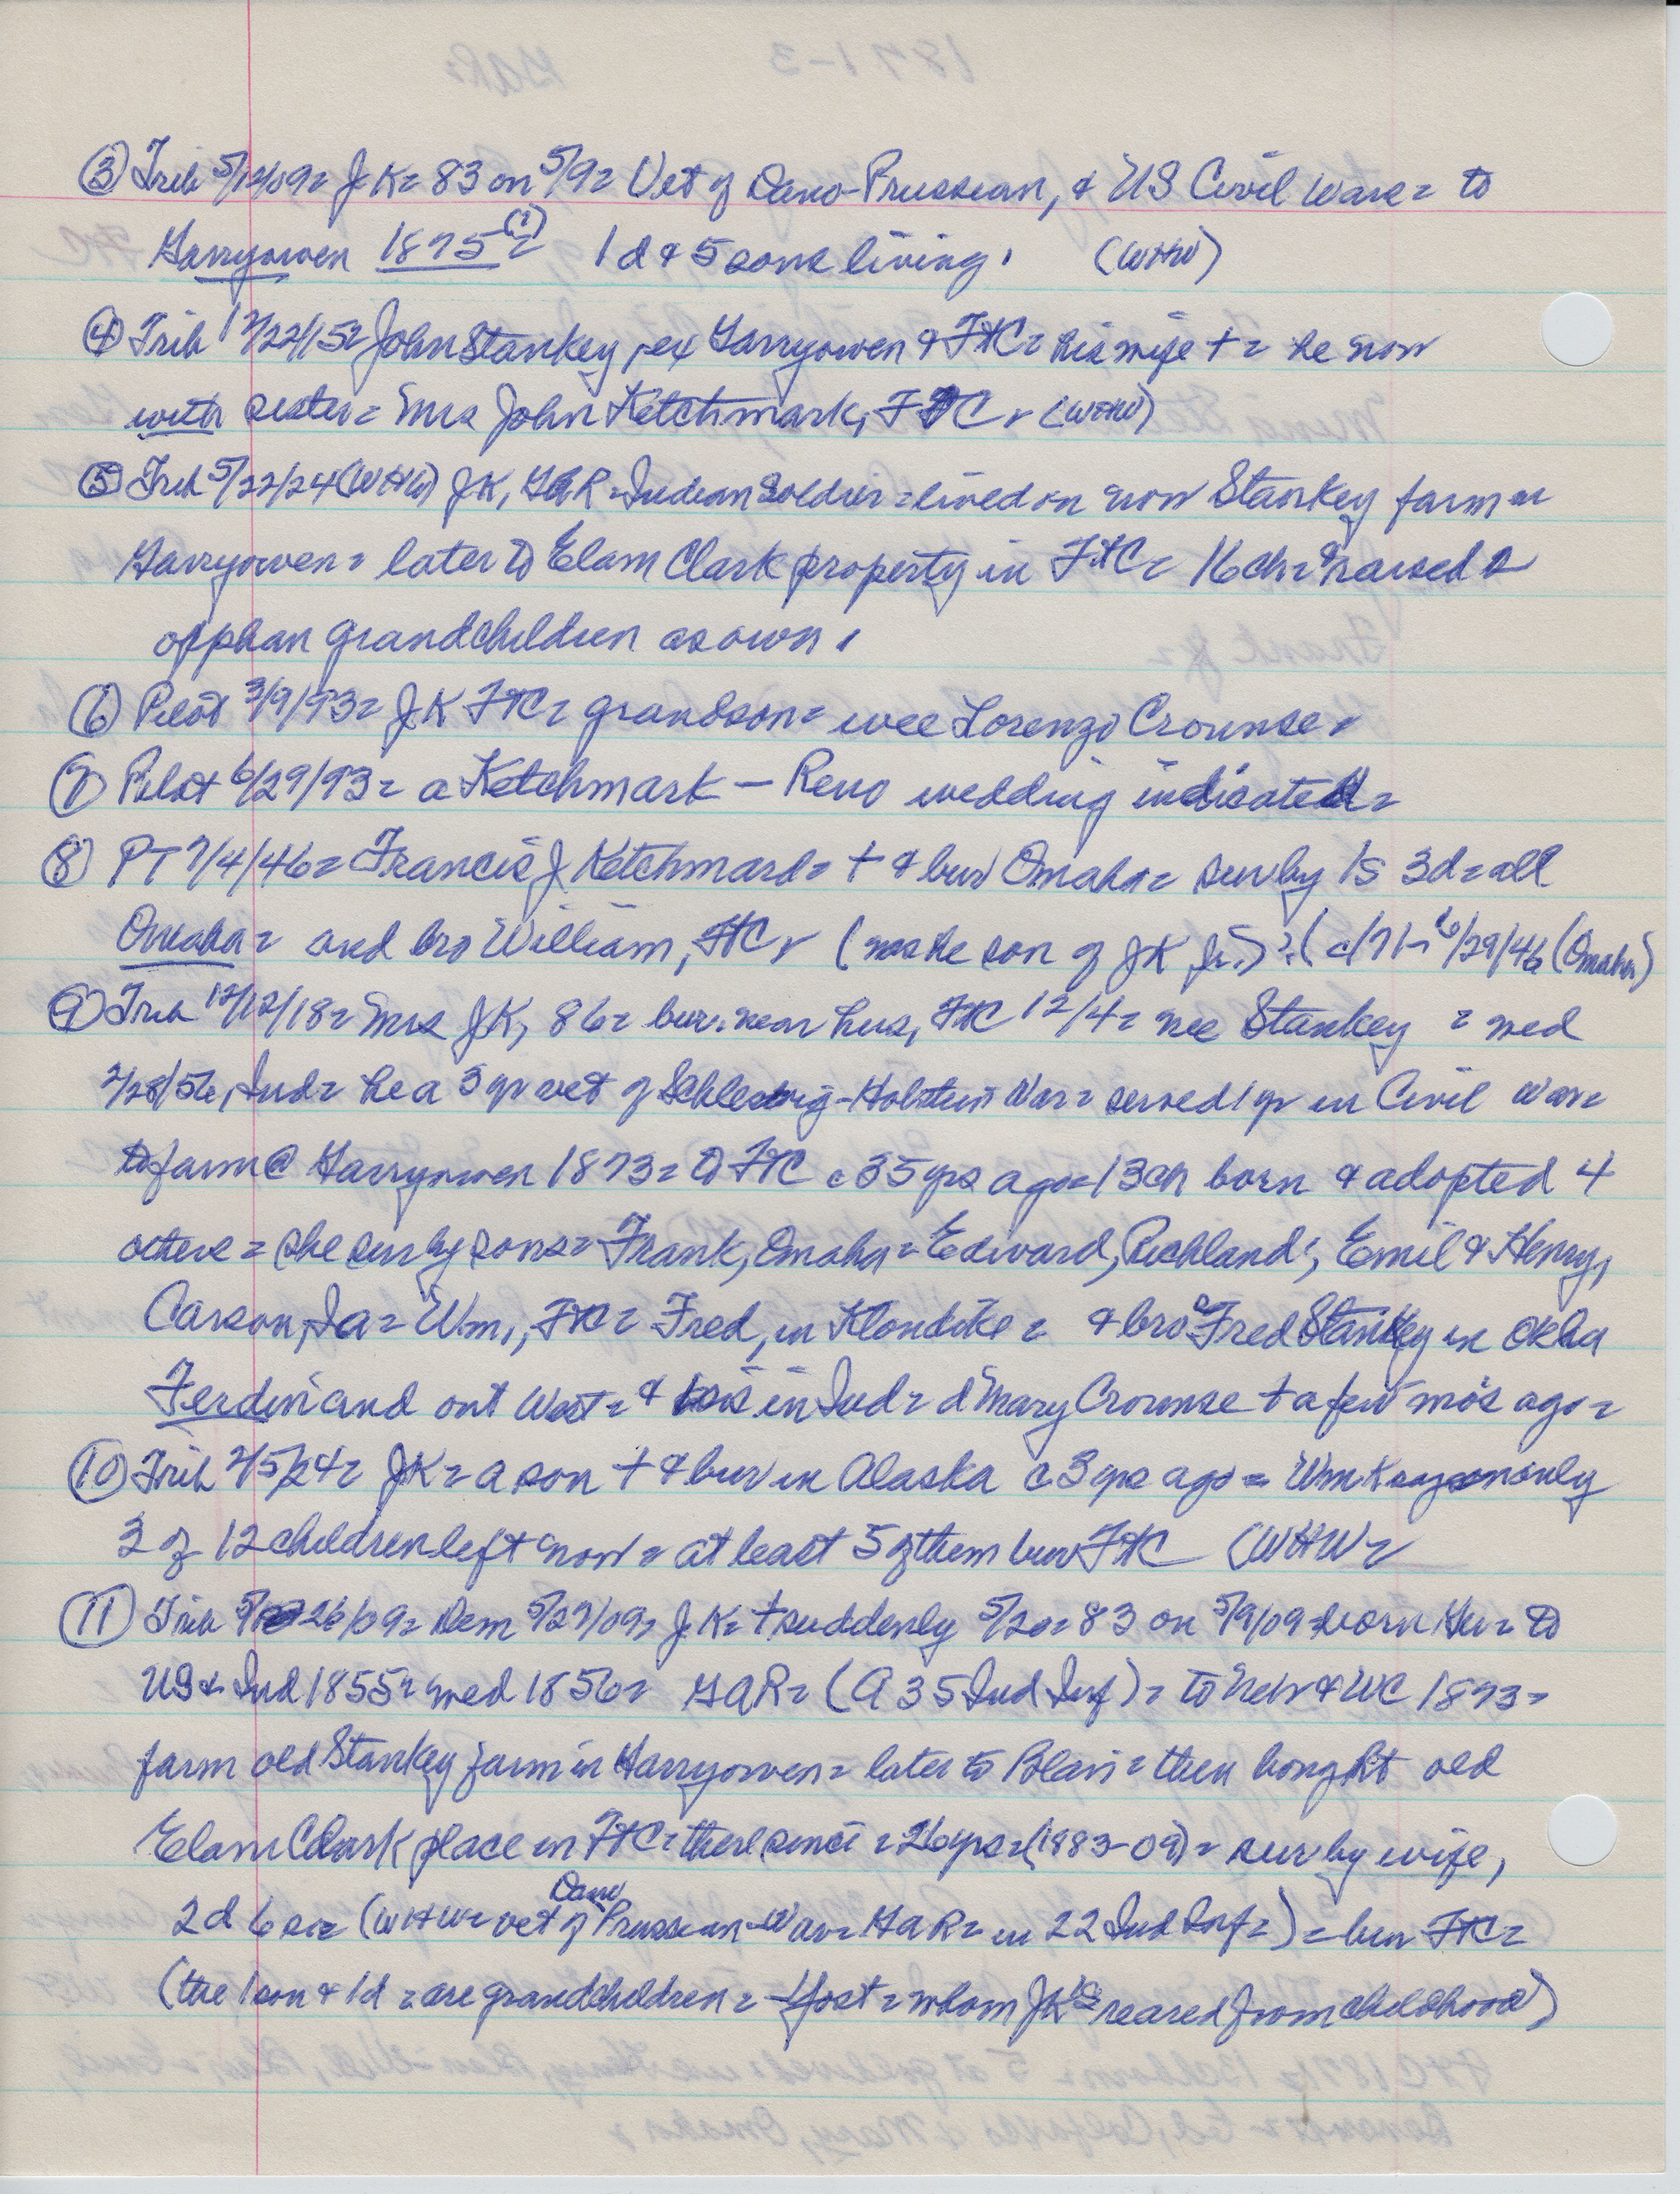 ③ Trib 5/12/09= JK= 83 on 5/9= Vet of Dano-Prussian, & US Civil Wars= to
Harryowen 1875(?)= 1 d & 5 sons living. (WHW)
④ Trib 12/22/15= John Stankey, ex Harryowen & FtC= his wife += he now
with sister= Mrs John Ketchmark, FTC= (WHW)
⑤ Trib 5/22/24 (WHW) JK, GAR= Indian Soldier= lived on now Stankey farm in
Harryowen= later to Elam Clark property in FtC= 16 ch= & raised 2
opphan grandchildren as own.
⑥ Pilot 3/9/93= JK FTC= grandson= wee Lorenzo Crounse=
⑦ Pilot 6/29/93= a Ketchmark — Reno wedding indicated=
⑧ PT 7/4/46= Francis J Ketchmard= + & bur Omaha= sur by 1s 3d= all
Omaha= and bro William, FTC= (was he son of JK Jr.)?( c/71- 6/29/46 (Omaha)
⑨ Trib 12/12/18= Mrs JK, 86= bur. near hus, FTC 12/4= nee Stankey = wed
2/28/56, Ind= he a 3 yr vet of Schleswig-Holstein War= served 1 yr in Civil War=
to farm @ Harryowen 1873= to FTC c 35 yrs ago= 13 ch born & adopted 4
others= she sur by sons= Frank, Omaha= Edward, Richland; Emil & Henry,
Carson, Ia= Wm, FTC= Fred, in Klondike= & bros Fred Stankey in Okla
Ferdinand out West= & in Ind= d Mary Crounse + a few mo's ago=
⑩ Trib 2/5/24= JK= a son + & bur in Alaska c 3 yrs ago= Wm K says only
3 of 12 children left now= at least 5 of them bur FTC (WHW=
⑪ Trib 5/26/09= Dem 5/27/09= JK= + suddenly 5/20= 83 on 5/9/09= born Ger= to
US & Ind 1855= wed 1856= GAR= (A 35 Ind Inf)= to Neb & WC 1873=
farm old Stankey farm in Harryowen= later to Blair= then bought old
Elam Clark place in FTC= there since= 26 yrs= (1883-09)= sur by wife,
2d 6 s= (WHW= vet of Dano Prussian War= GAR= in 22 Ind Inf=)= bur FTC=
(the 1 son & 1d= are grandchildren= Yost= whom JK's reared from childhood)